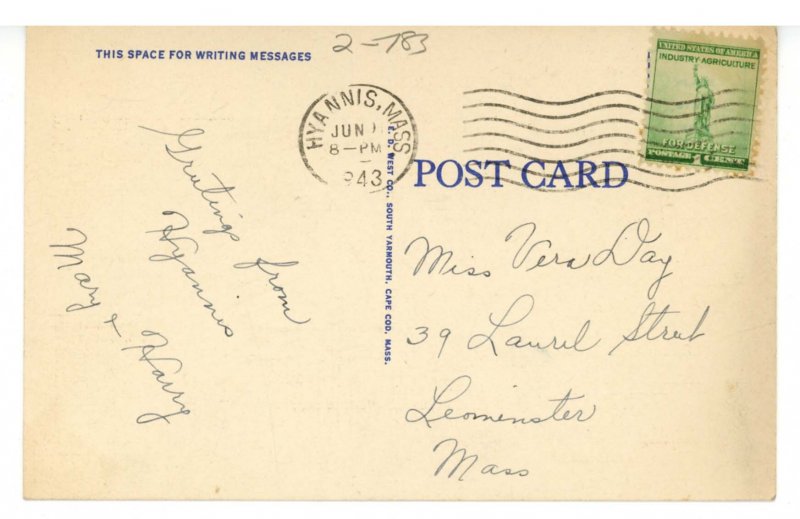 THIS SPACE FOR WRITING MESSAGES
2-783
HYANNIS, MASS
JUN
8-PM
1943
UNITED STATES OF AMERICA
INDUSTRY AGRICULTURE
FOR DEFENSE
POSTAGE 1 CENT
E. D. WEST CO., SOUTH YARMOUTH, CAPE COD, MASS.
POST CARD
Greetings from
Hyannis
Mary & Harry
Miss Vera Day
39 Laurel Street
Leominster
Mass